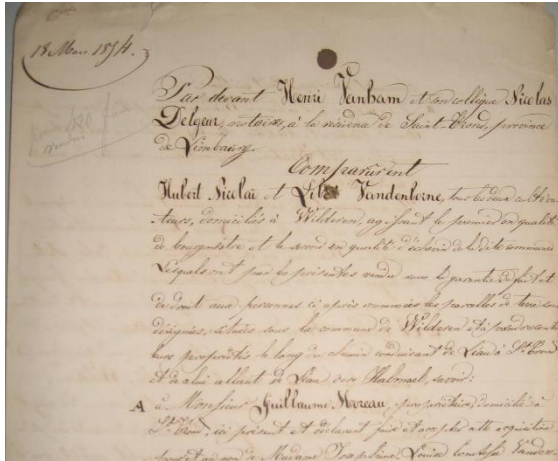 18 Mars 1854.
Par devant Henri Vanham et son collègue Nicolas
Delgeur, notaires, à la résidence de Saint-Trond, province
de Limbourg.
Comparurent
Hubert Nicolaï et Vandenborne, tous les deux cultiva-
teurs, domiciliés à Wilderen, agissant le premier en qualité
de bourgmestre et le second en qualité d'échevin de la dite commune
Lesquels ont par les présentes vendu sous la garantie de fait et
de droit aux personnes ci après nommées les parcelles de terre sous
désignées, situées sous la commune de Wilderen et à prendre contre
leurs propriétés le long du chemin conduisant de Léau à St Trond
et de celui allant de Léau vers Halmael, savoir:
A à Monsieur Guillaume Moreau, propriétaire, domicilié à
St Trond, ici présent et déclarant faire et accepter cette acquisition
au nom de Madame Joséphine Louise Comtesse Vander